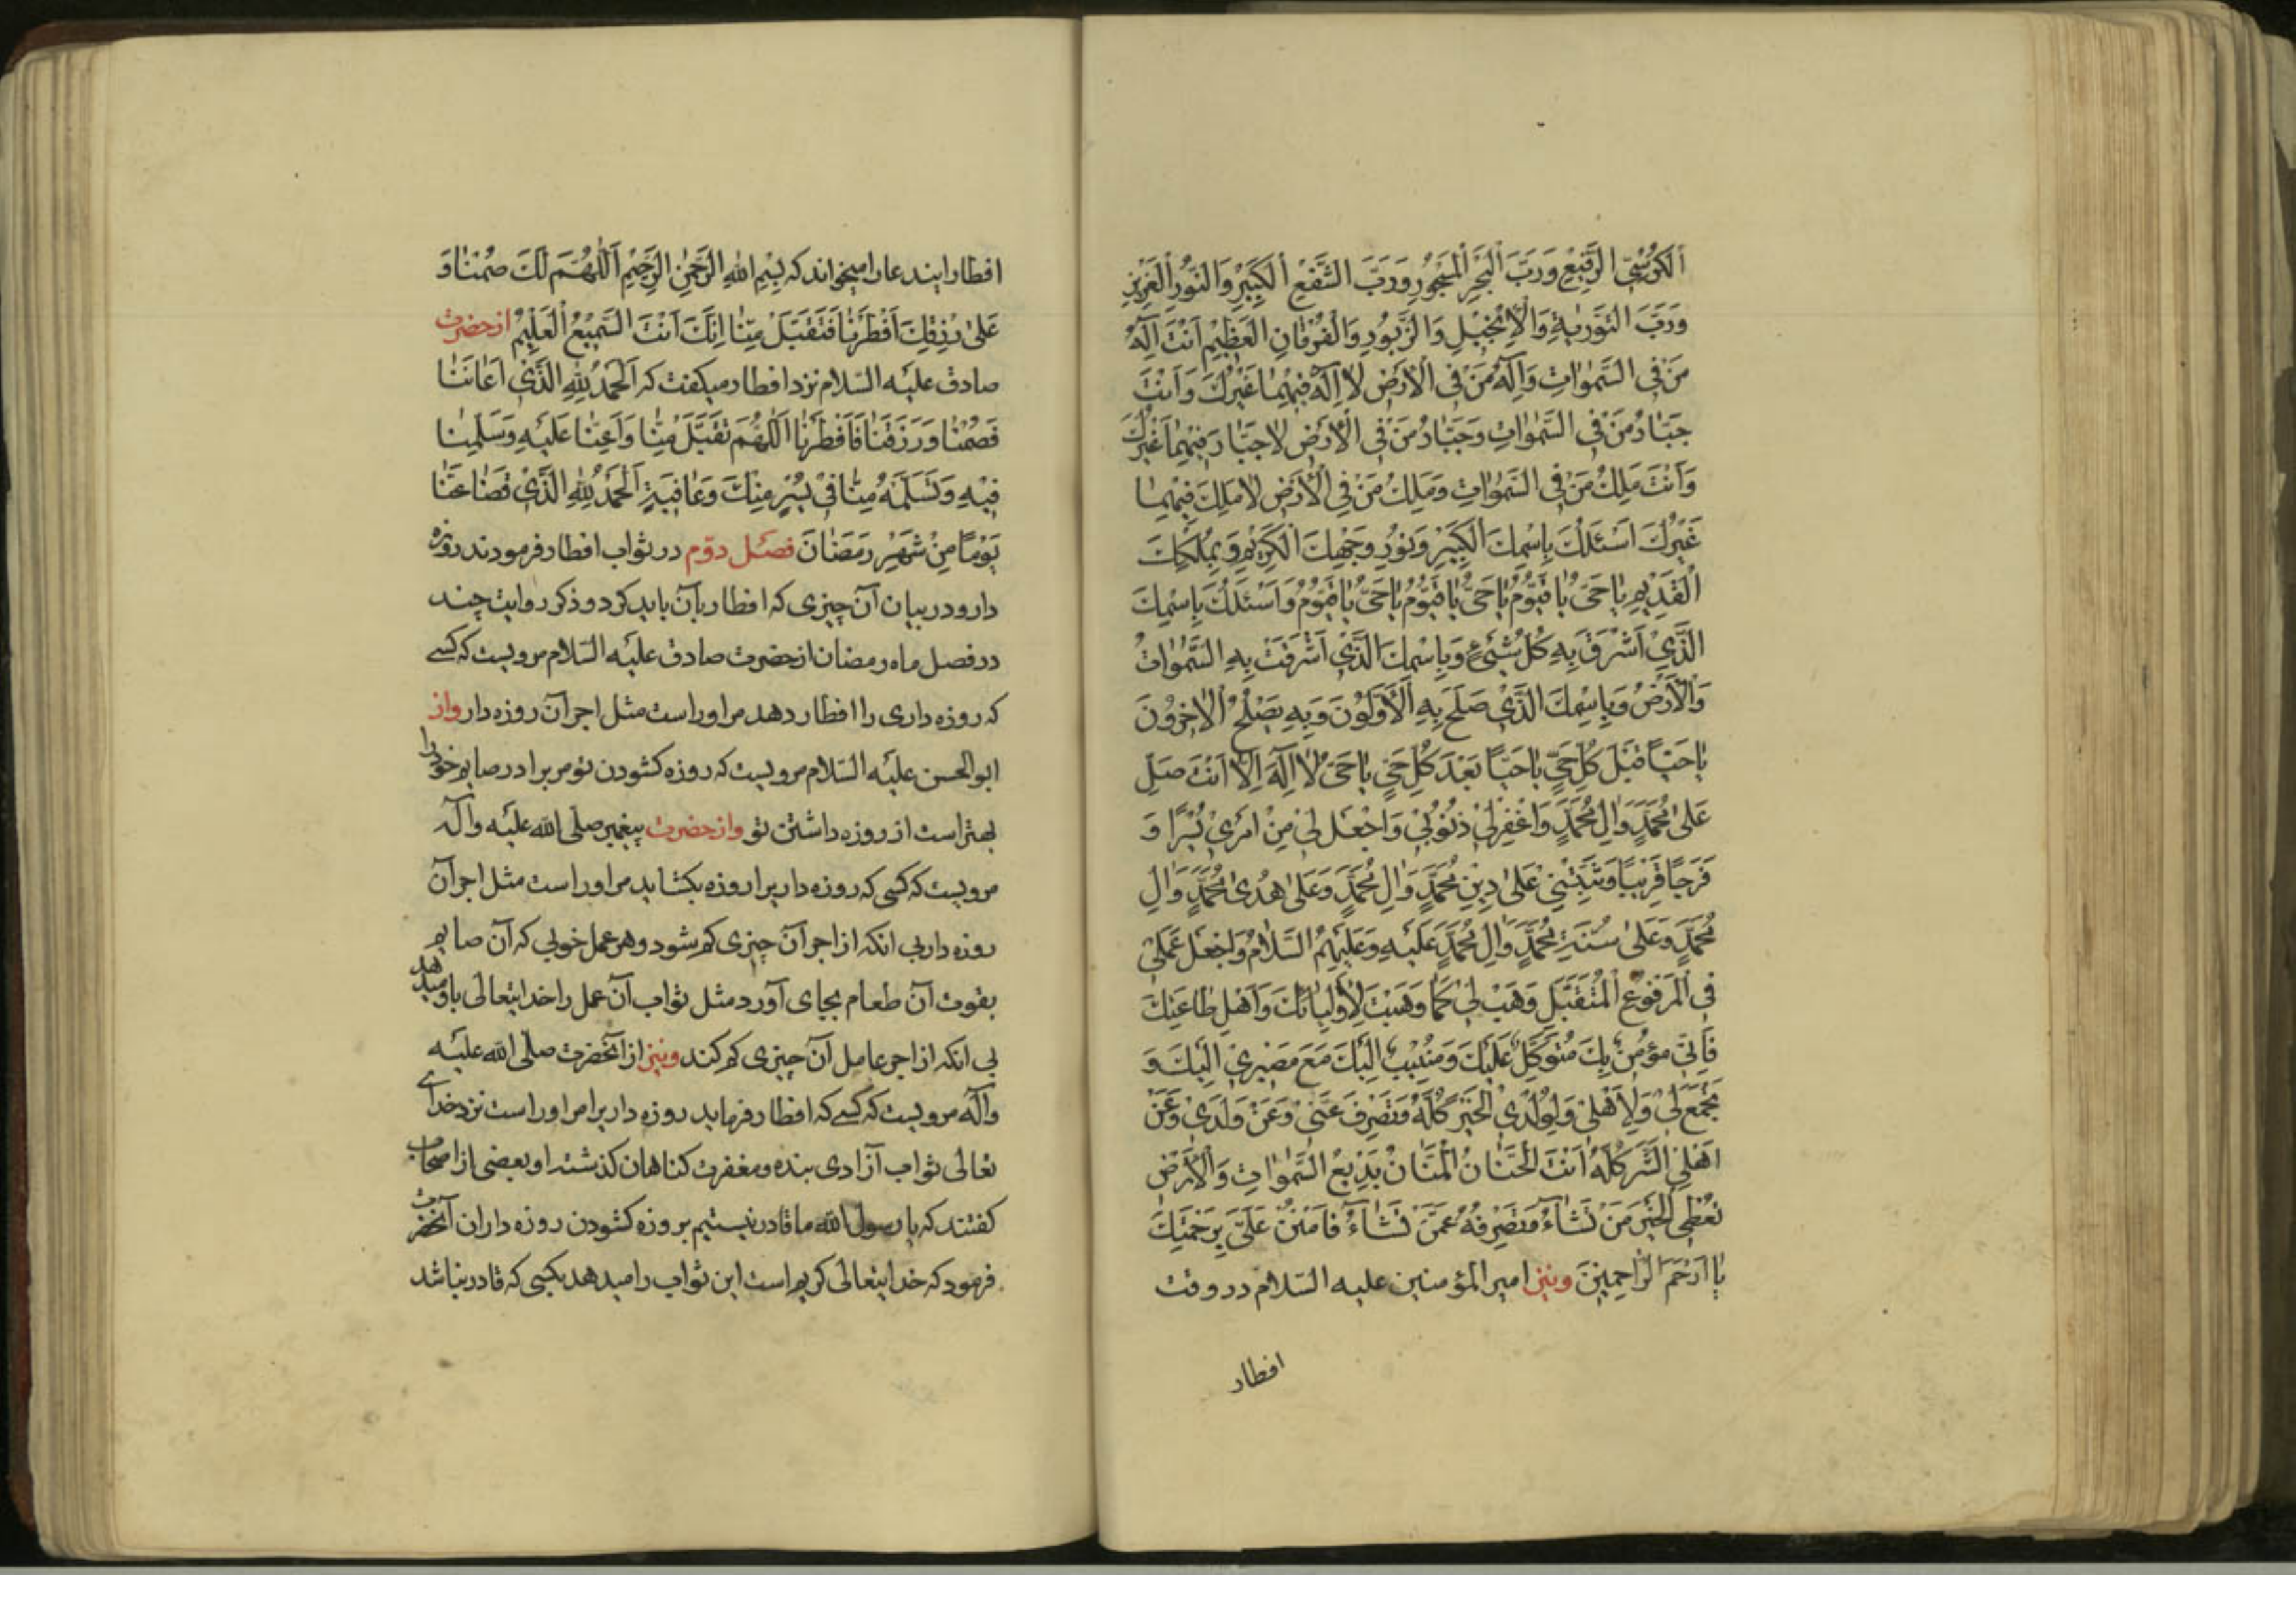 اَلْكُرْسِيِّ الرَّفِيعِ وَرَبَّ الْبَحْرِ الْمَسْجُورِ وَرَبَّ الشَّفْعِ الْكَبِيرِ وَالنُّورِ الْعَزِيزِ
وَرَبَّ التَّوْرٰيةِ وَالْاِنْجِيلِ وَالزَّبُورِ وَالْفُرْقَانِ الْعَظِيمِ اَنْتَ اِلٰهُ
مَنْ فِي السَّمٰوَاتِ وَاِلٰهُ مَنْ فِي الْاَرْضِ لَا اِلٰهَ فِيهِمَا غَيْرُكَ وَاَنْتَ
جَبَّارُ مَنْ فِي السَّمٰوَاتِ وَجَبَّارُ مَنْ فِي الْاَرْضِ لَا جَبَّارَ فِيهِمَا غَيْرُكَ
وَاَنْتَ مَلِكُ مَنْ فِي السَّمٰوَاتِ وَمَلِكُ مَنْ فِي الْاَرْضِ لَا مَلِكَ فِيهِمَا
غَيْرُكَ اَسْئَلُكَ بِاسْمِكَ الْكَبِيرِ وَنُورِ وَجْهِكَ الْكَرِيمِ وَبِمُلْكِكَ
الْقَدِيمِ يَا حَيُّ يَا قَيُّومُ يَا حَيُّ يَا قَيُّومُ يَا حَيُّ يَا قَيُّومُ وَاَسْئَلُكَ بِاسْمِكَ
الَّذِي اَشْرَقَ بِهِ كُلُّ شَيْءٍ وَبِاسْمِكَ الَّذِي اَشْرَقَتْ بِهِ السَّمٰوَاتُ
وَالْاَرْضُ وَبِاسْمِكَ الَّذِي صَلَحَ بِهِ الْاَوَّلُونَ وَبِهِ يَصْلُحُ الْاٰخِرُونَ
يَا حَيًّا قَبْلَ كُلِّ حَيٍّ يَا حَيًّا بَعْدَ كُلِّ حَيٍّ يَا حَيُّ لَا اِلٰهَ اِلَّا اَنْتَ صَلِّ
عَلٰى مُحَمَّدٍ وَاٰلِ مُحَمَّدٍ وَاغْفِرْ لِي ذُنُوبِي وَاجْعَلْ لِي مِنْ اَمْرِي يُسْرًا وَ
فَرَجًا قَرِيبًا وَثَبِّتْنِي عَلٰى دِينِ مُحَمَّدٍ وَاٰلِ مُحَمَّدٍ وَعَلٰى هُدٰى مُحَمَّدٍ وَاٰلِ
مُحَمَّدٍ وَعَلٰى سُنَّةِ مُحَمَّدٍ وَاٰلِ مُحَمَّدٍ عَلَيْهِ وَعَلَيْهِمُ السَّلَامُ وَاجْعَلْ عَمَلِي
فِي الْمَرْفُوعِ الْمُتَقَبَّلِ وَهَبْ لِي كَمَا وَهَبْتَ لِاَوْلِيَائِكَ وَاَهْلِ طَاعَتِكَ
فَاِنِّي مُؤْمِنٌ بِكَ مُتَوَكِّلٌ عَلَيْكَ وَمُنِيبٌ اِلَيْكَ مَعَ مَصِيرِي اِلَيْكَ وَ
تَجْمَعُ لِي وَلِاَهْلِي وَلِوُلْدِي الْخَيْرَ كُلَّهُ وَتَصْرِفُ عَنِّي وَعَنْ وَلَدِي وَعَنْ
اَهْلِي الشَّرَّ كُلَّهُ اَنْتَ الْحَنَّانُ الْمَنَّانُ بَدِيعُ السَّمٰوَاتِ وَالْاَرْضِ
تُعْطِي الْخَيْرَ مَنْ تَشَآءُ وَتَصْرِفُهُ عَمَّنْ تَشَآءُ فَامْنُنْ عَلَيَّ بِرَحْمَتِكَ
يَا اَرْحَمَ الرَّاحِمِينَ ونیز امیر المؤمنین علیه السّلام در وقت
افطار
افطار ایندعا را میخواند که بِسْمِ اللهِ الرَّحْمٰنِ الرَّحِيمِ اَللّٰهُمَّ لَكَ صُمْنَا وَ
عَلٰى رِزْقِكَ اَفْطَرْنَا فَتَقَبَّلْ مِنَّا اِنَّكَ اَنْتَ السَّمِيعُ الْعَلِيمُ از حضرت
صادق علیه السّلام نزد افطار میکفت که اَلْحَمْدُ لِلّٰهِ الَّذِي اَعَانَنَا
فَصُمْنَا وَرَزَقَنَا فَاَفْطَرْنَا اَللّٰهُمَّ تَقَبَّلْ مِنَّا وَاَعِنَّا عَلَيْهِ وَسَلِّمْنَا
فِيهِ وَتَسَلَّمْهُ مِنَّا فِي يُسْرٍ مِنْكَ وَعَافِيَةٍ اَلْحَمْدُ لِلّٰهِ الَّذِي قَضَا عَنَّا
يَوْمًا مِنْ شَهْرِ رَمَضَانَ فصل دوّم در ثواب افطار فرمودن روزه
دار و در بیان آن چیزی که افطار بآن باید کرد و ذکر روایت چند
در فصل ماه رمضان از حضرت صادق علیه السّلام مرویست که کسے
که روزه داری را افطار دهد مر اوراست مثل اجر آن روزه دار واز
ابو الحسن علیه السّلام مرویست که روزه کشودن تو مر برادر صایم خود را
بهتر است از روزه داشتن تو واز حضرت پیغمبر صلّی الله علیه وآله
مرویست که کسی که روزه دار یرا روزه بکشاید مر اوراست مثل اجر آن
روزه دار بی انکه از اجر آن چیزی کم شود وهر عمل خوبی که آن صایم
بقوت آن طعام بجای آورد مثل ثواب آن عمل را خدایتعالی باو میدهد
بی انکه از اجر عامل آن چیزی کم کند ونیز از آنحضرت صلّی الله علیه
وآله مرویست که کسے که افطار فرماید روزه دار یرا مر اوراست نزد خداے
تعالی ثواب آزادی بنده و مغفرت کناهان کذشته او بعضی از اصحاب
کفتند که یا رسول الله ما قادر نیستیم بر روزه کشودن روزه داران آنحضرت
فرمود که خدایتعالی کریم است این ثواب را میدهد بکسی که قادر نباشد